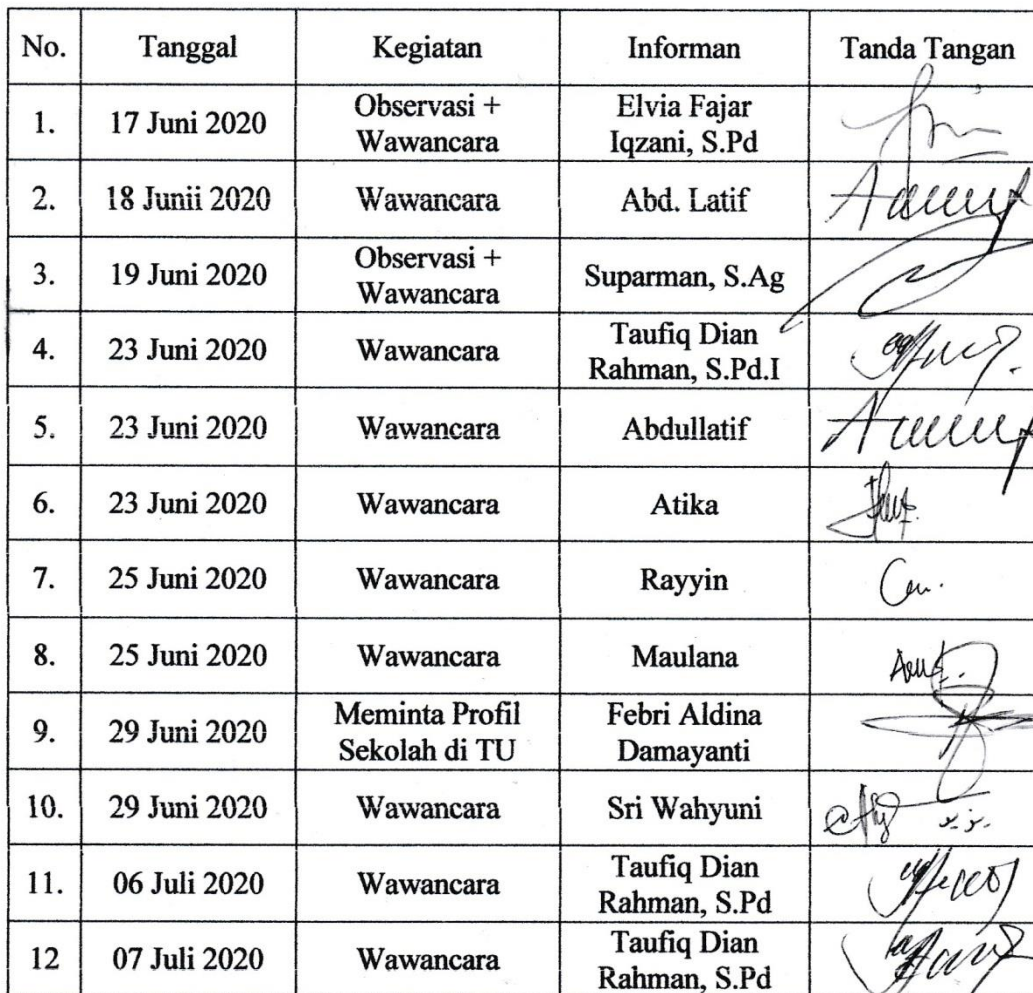 No. Tanggal Kegiatan Informan Tanda Tangan
1. 17 Juni 2020 Observasi + Wawancara Elvia Fajar Iqzani, S.Pd
2. 18 Junii 2020 Wawancara Abd. Latif
3. 19 Juni 2020 Observasi + Wawancara Suparman, S.Ag
4. 23 Juni 2020 Wawancara Taufiq Dian Rahman, S.Pd.I
5. 23 Juni 2020 Wawancara Abdullatif
6. 23 Juni 2020 Wawancara Atika
7. 25 Juni 2020 Wawancara Rayyin
8. 25 Juni 2020 Wawancara Maulana
9. 29 Juni 2020 Meminta Profil Sekolah di TU Febri Aldina Damayanti
10. 29 Juni 2020 Wawancara Sri Wahyuni
11. 06 Juli 2020 Wawancara Taufiq Dian Rahman, S.Pd
12 07 Juli 2020 Wawancara Taufiq Dian Rahman, S.Pd